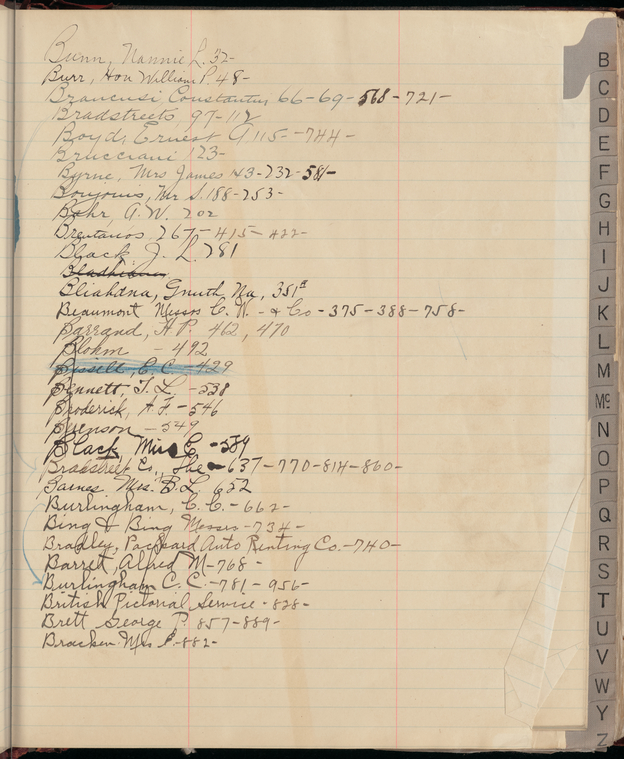 Bunn, Nannie L. 32-
Burr, Hon William P. 48-
Brancusi Constantin 66-69-568-721-
Bradstreets 97-112
Boyd, Ernest A 115-744-
Brucciani 123-
Byrne, Mrs James 143-732-581-
Boujouis, Mr S. 188-253-
Bahr, A.W. 202
Brentanos, 267-415-422-
Black, J. L. 281
Bliahdna, Gnuth Na, 351
Beaumont Messrs C. W. & Co-375-388-758-
Barrand, A.P. 462, 470
Blohm - 492
Bissell, E.C. -429
Bennett, T.L -538
Broderick, A.F.-546
Buenson -549
Black, Miss E -589
Bradstreet Co., The -637-770-814-860-
Barnes Mrs. B.L. 652
Burlingham, C.C.-662-
Bing & Bing Messrs-734-
Bradley, Packard Auto Renting Co.-740-
Barret, Alfred M-768-
Burlingham C.C.-781-956-
British Pictorial Service-828-
Brett George P. 857-889-
Bracken Mrs P.-882-
B
C
D
E
F
G
H
I
J
K
L
M
Mc
N
O
P
Q
R
S
T
U
V
W
Y
Z